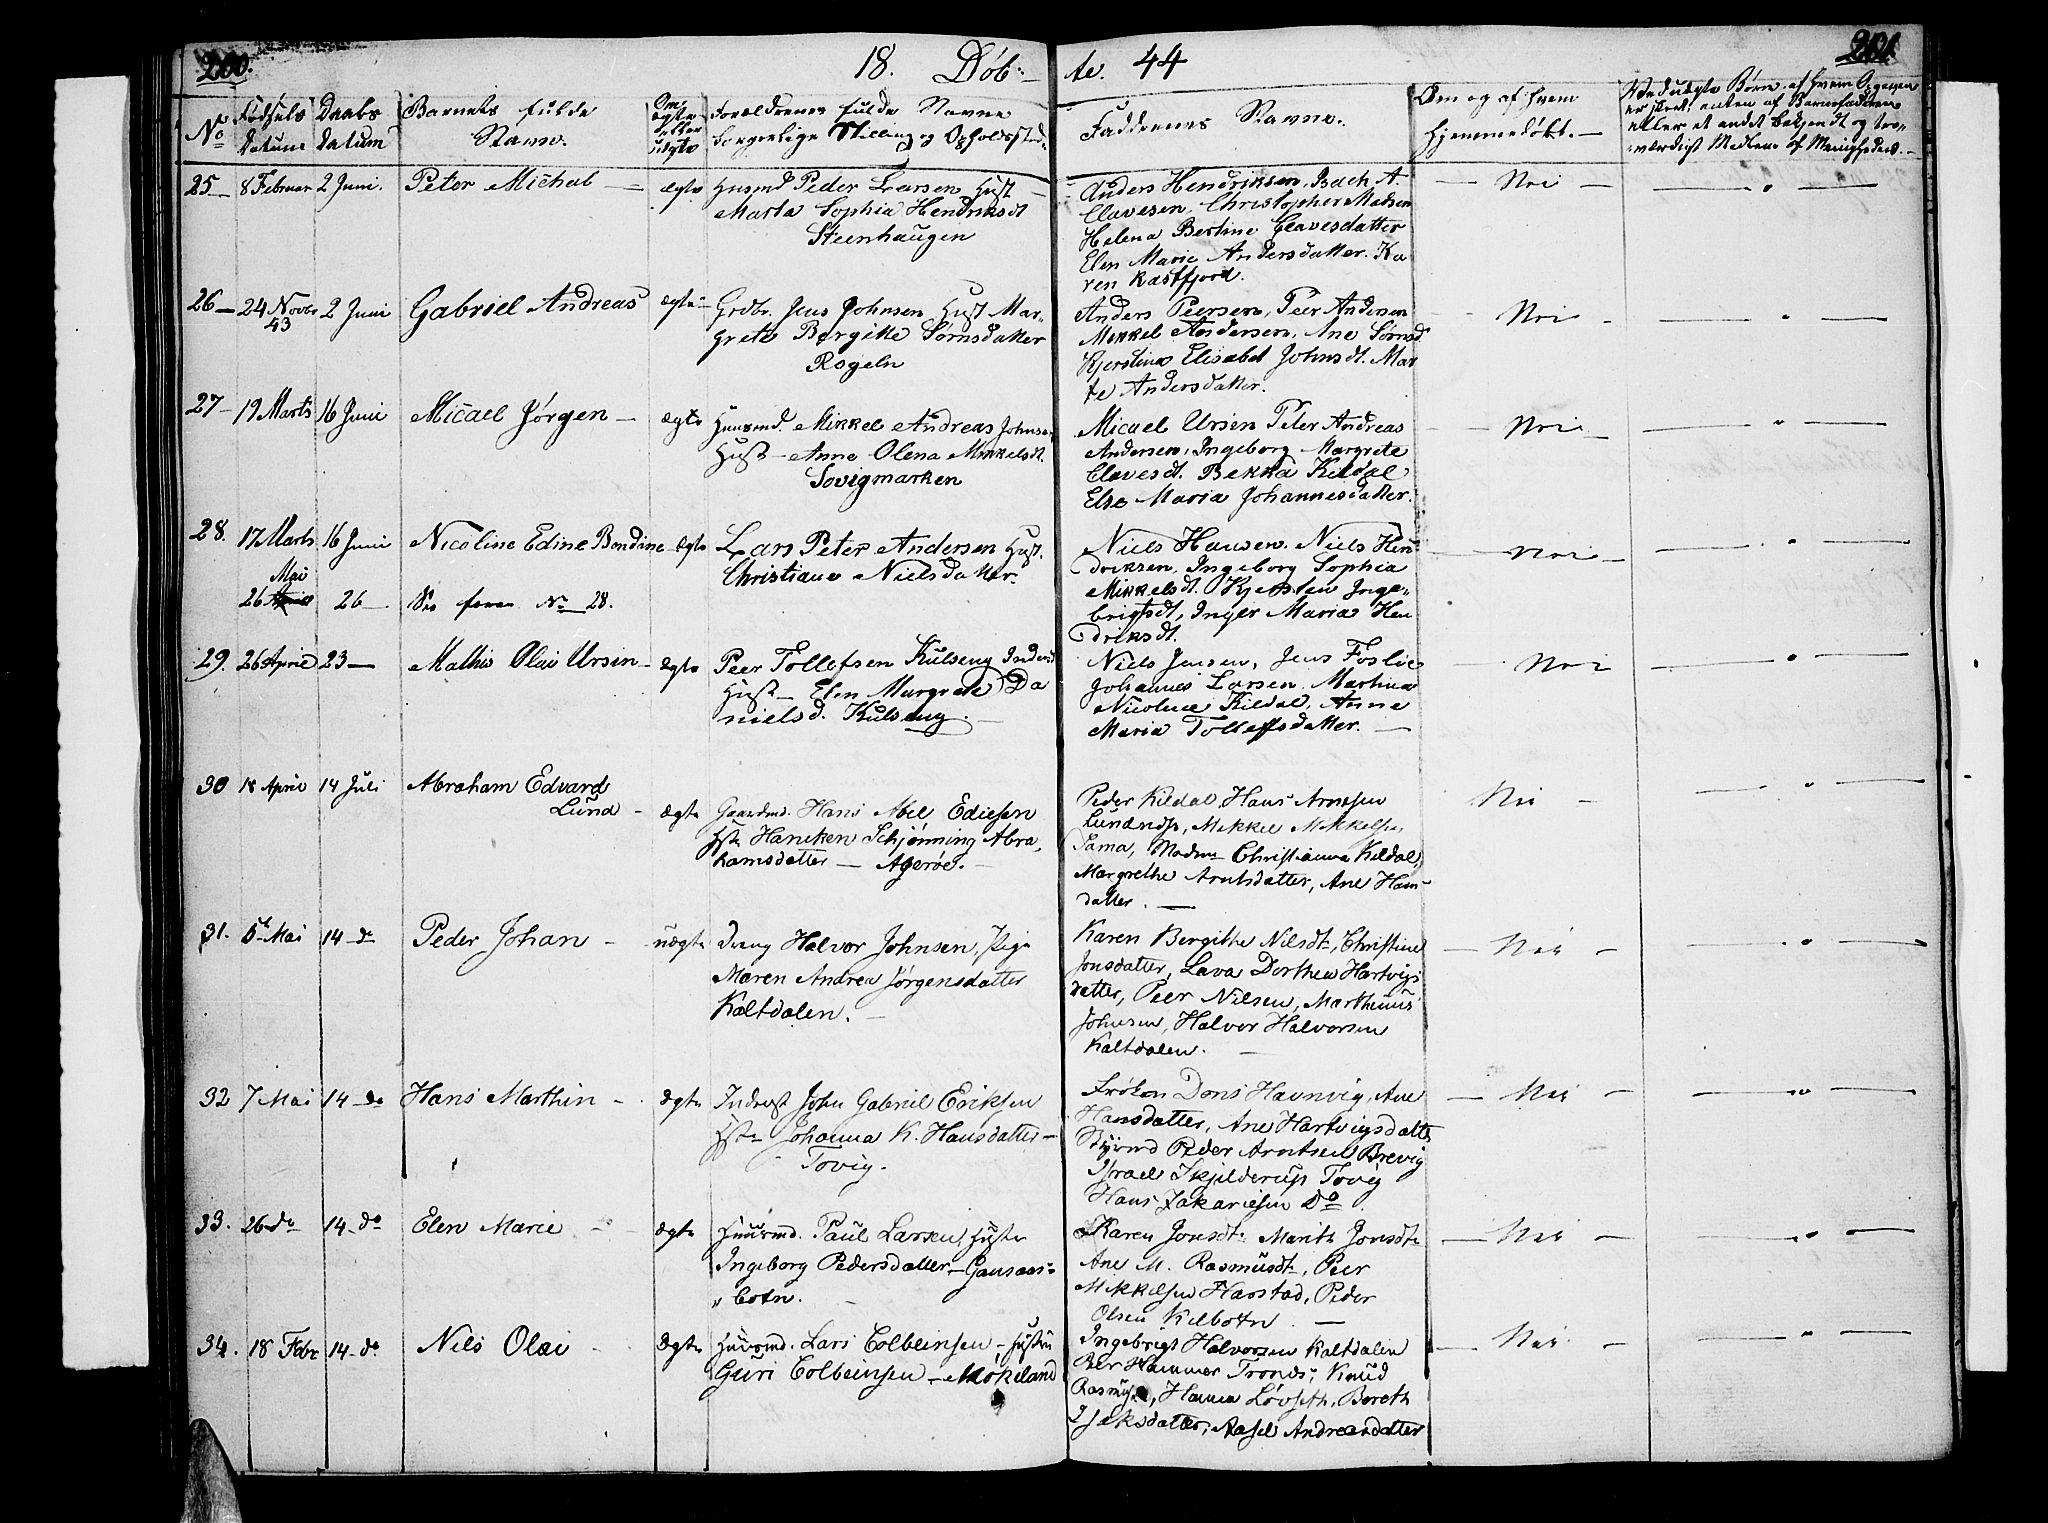 200.
18. Döb-
te. 44
201.
No
Födsels Datum
Daabs Datum
Barnets fulde Navn.
Om ægte eller uægte
Forældrenes fulde Navne borgerlige Stilling og Opholdssted.
Faddrenes Navne.
Om og af hvem hjemmedøbt.
25 8 Februar 2 Juni. Peter Michal ægte Husmd Peder Larsen Hust
Marta Sophia Hendriksdt
Steenhaugen
Anders Hendriksen, Bach A.
Clavesen, Christopher Matsen
Helena Bertine Clavesdatter
Elen Marie Andersdatter. Ka
ren Kastfjord.
Nei
26 24 Novbr 43 2 Juni Gabriel Andreas ægte Grdbr. Jens Johnsen Hust Mar-
grete Bergitte Sörnsdatter
Rogeln
Anders Peersen, Peer Andersen
Mikkel Andersen, Ane Sörnsd
Kjerstina Elisabet Johnsdt. Mar
te Andersdatter.
Nei
27 19 Marts 16 Juni Micael Jörgen ægte Huusmd. Mikkel Andreas Johnsen
Hust Anne Olena Mikkelsdt.
Sovigmarken
Micael Ursin Peter Andreas
Andersen, Ingeborg Margrete
Clavesdt. Bekka Kildal
Else Maria Johannesdatter.
Nei
28. 17 Marts 16 Juni Nicoline Edine Bendine ægte Lars Peter Andersen Hust.
Christiane Nielsdatter.
Niels Hansen. Niels Hen
driksen, Ingeborg Sophia
Mikkelsdt. Kjersten Inge-
brigtsdt, Inger Maria Hen
driksdt.
Nei
Mai
26 April 26 No 28.
29. 26 April 23 Mathis Olai Ursin ægte Peer Tollefsen Kulseng
Hust Elen Margrete Da
nielsd. Kulseng.
Niels Jensen, Jens Foslie
Johannes Larsen. Martina
Nicoline Kildal, Anne
Maria Tollefsdatter.
Nei
30 18 April 14 Juli Abraham Edvard
Lund ægte Gaardmd. Hans Abel Ediesen
Hste Haneken Schjønning Abra-
hamsdatter Agerøe.
Peder Kildal, Hans Arnesen
Mikkel Mikkelsen
Sama, Madm Christianna Kildal,
Margrethe Arntsdatter, Ane Hans-
datter.
Nei
31. 5te Mai 14 do Peder Johan uægte Dreng Halvor Johnsen, Pige
Maren Andrea Jørgensdatter
Kaltdalen.
Karen Bergithe Nilsdt, Christine
Jonsdatter, Lava Dorthea Hartvigs
datter, Peer Nilsen, Marthinus
Johnsen, Halvor Halvorsen
Kaltdalen.
Nei
32 7 Mai 14 do Hans Marthin ægte Inderst John Gabriel Eriksen
Hste Johanna K. Hansdatter
Tovig.
Frøken Dons Havnvig, Ane
Hansdatter, Ane Hartvigsdatter
Peder Arntsen Brevig
Israel Skjelderup Tovig
Hans Zakariesen Do
Nei
33. 26 do 14 do Elen Marie ægte Huusmd. Paul Larsen, Hste
Ingeborg Pedersdatter Gansaas-
botn.
Karen Jonsdt Marith Jonsdt
Ane M. Rasmusdt, Peer
Mikkelsen Harstad, Peder
Olsen Kilbotn
Nei
34. 18 Febr 14 do Nils Olai ægte Huusmd. Lars Colbeinsen, Hustru
Guri Colbeinsen Møkeland
Ingebrigt Halvorsen Kaltdalen
Per Hammer Tronds; Knud
Hanna Løvseth, Bereth
Isaksdatter, Aasel Andreasdatter
Nei